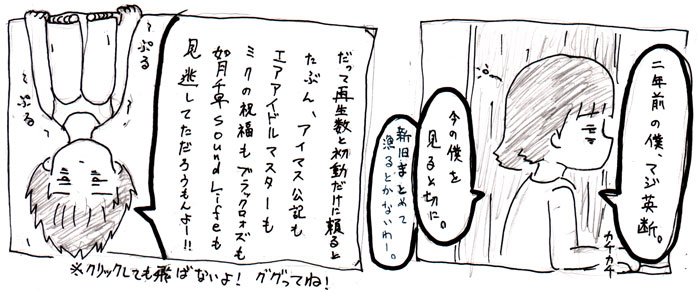 二年前の僕、マジ英断。
カチカチ
今の僕を
見ると切に。
新旧まとめて
漁るとかないわー。
だって再生数と初動だけに頼ると
たぶん、アイマス公記も
エアアイドルマスターも
ミクの祝福もブラクロォズも
如月千早 Sound Lifeも
見逃してただろうもんよー!!
〜ぷる
〜ぷる
※クリックしても飛ばないよ! ググってね!